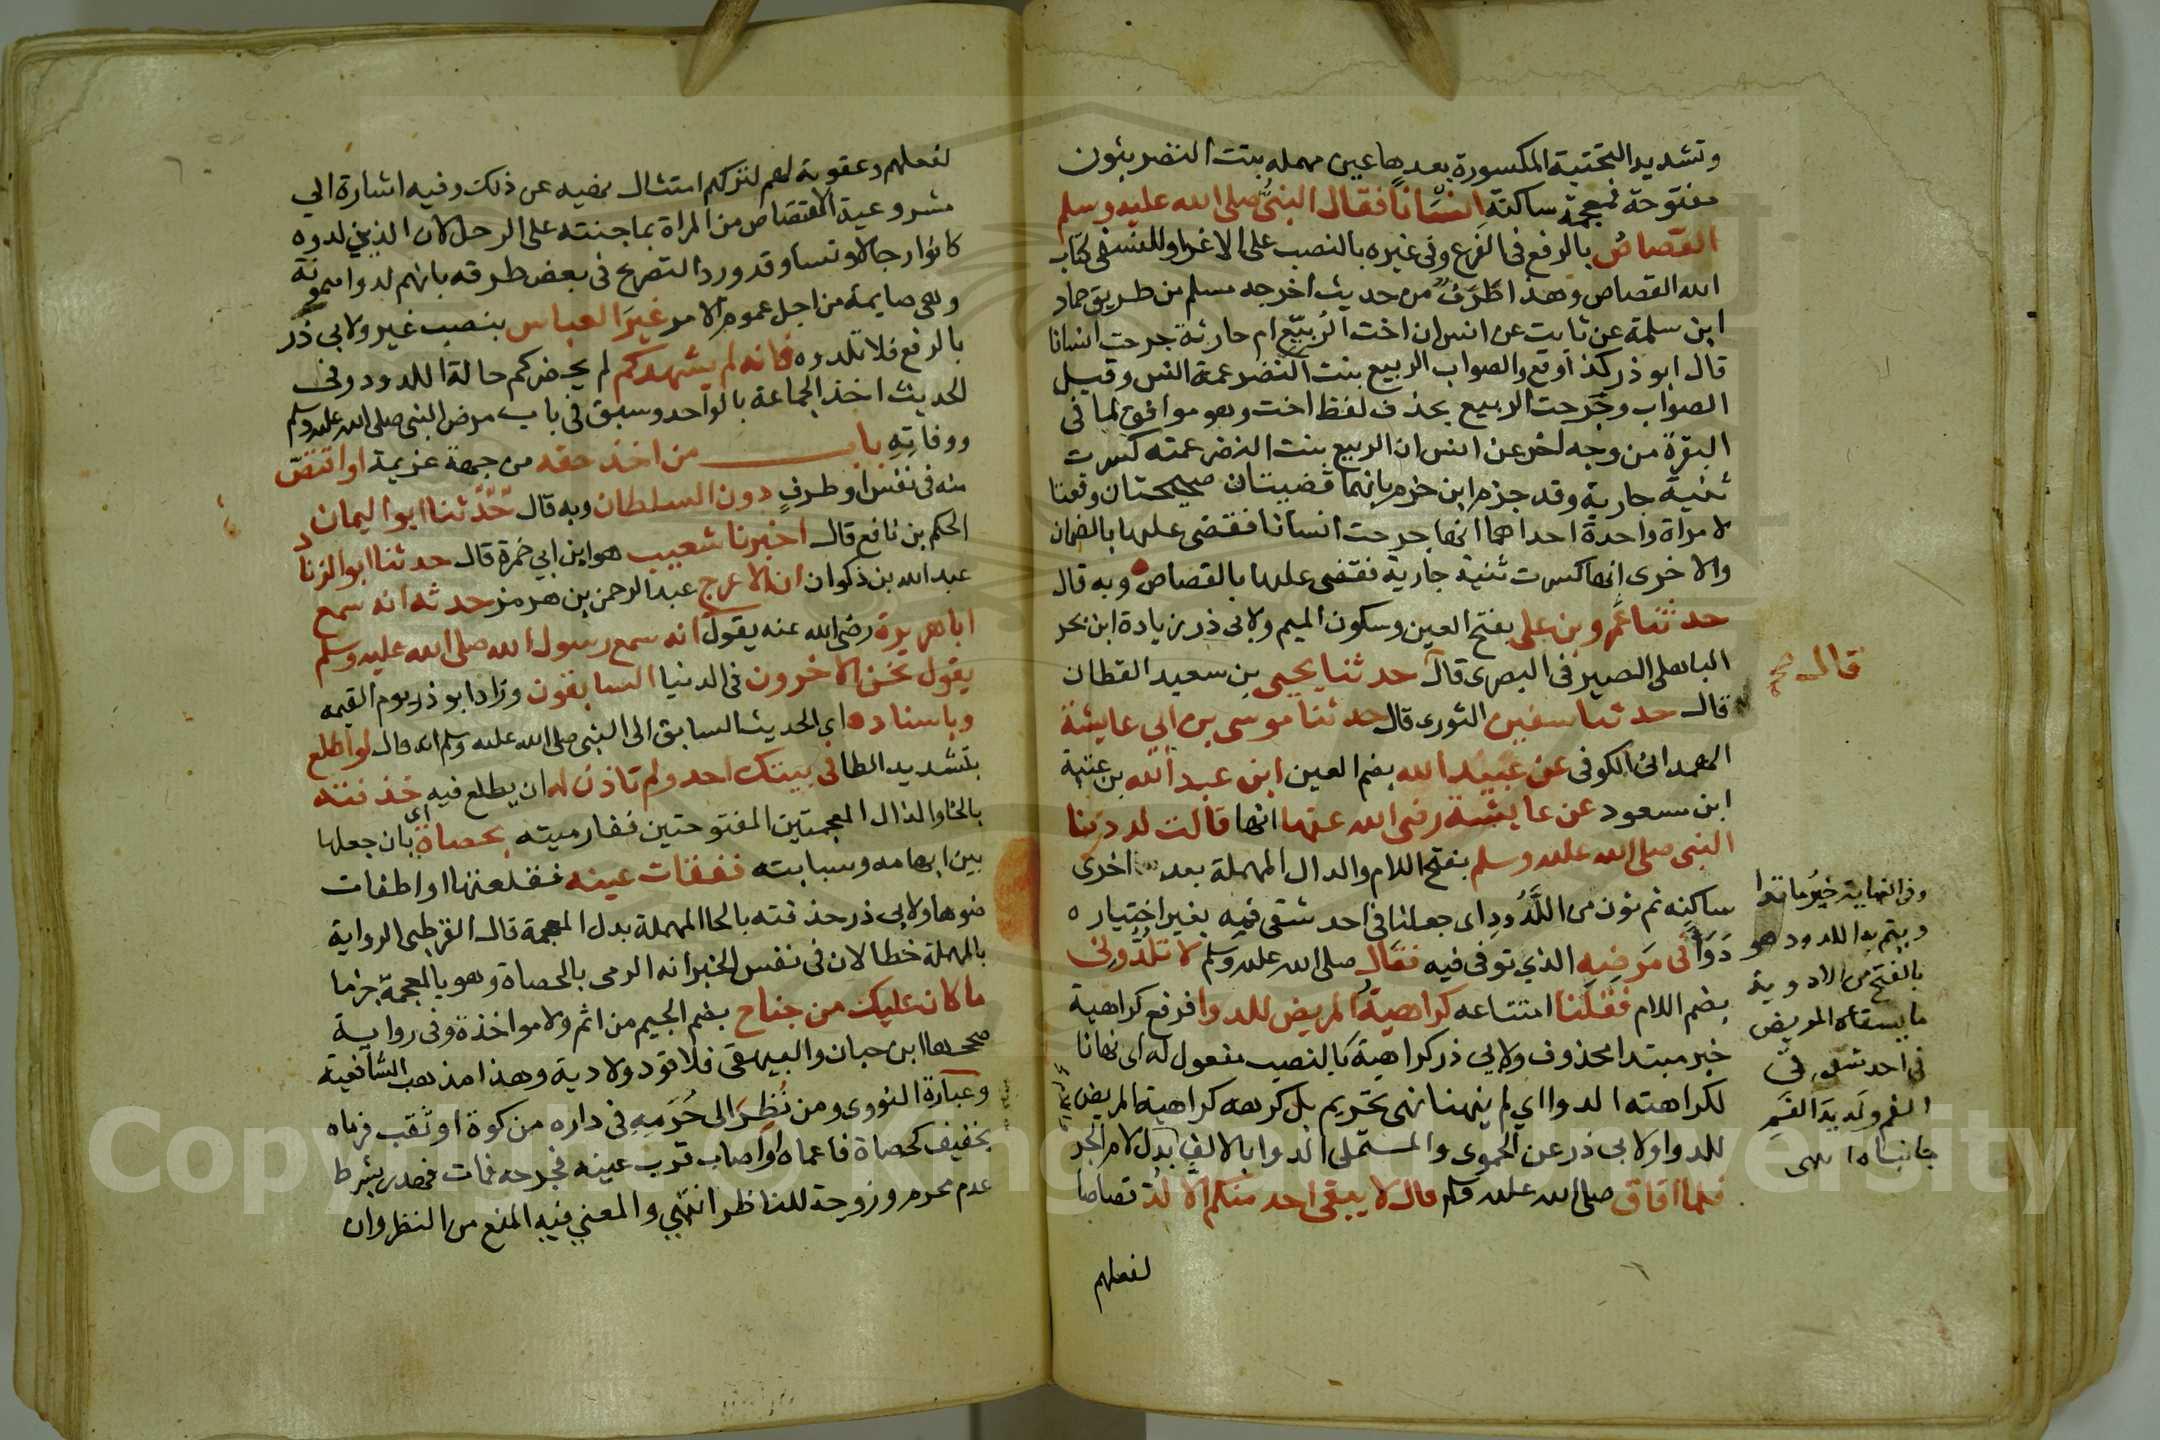 وتشديد التحتية المكسورة بعدها عين مهمله بنت النضر بنون
مفتوحة فمعجمة ساكنة انسانا فقال النبي صلى الله عليه وسلم
القصاص بالرفع في الفرع وفي غيره بالنصب على الاغراء وللنسفي كتاب
الله القصاص وهذا طرف من حديث اخرجه مسلم من طريق حماد
ابن سلمة عن ثابت عن انس ان اخت الربيع ام حارثة جرحت انسانا
قال ابو ذر كذا وقع والصواب الربيع بنت النضر عمة انس وقيل
الصواب وجرحت الربيع بحذف لفظ اخت وهو موافق لما في
البقرة من وجه اخر عن انس ان الربيع بنت النضر عمته كسرت
ثنية جارية وقد جزم ابن حزم بانهما قضيتان صحيحتان وقعتا
لامراة واحدة احداهما انها جرحت انسانا فقضى عليها بالضمان
والاخرى انها كسرت ثنية جارية فقضى عليها بالقصاص وبه قال
حدثنا عمرو بن علي بفتح العين وسكون الميم ولابي ذر زيادة ابن بحر
الباهلي الصيرفي البصري قال حدثنا يحيى بن سعيد القطان
قال حدثنا سفين الثوري قال حدثنا موسى بن ابي عايشة
الهمداني الكوفي عن عبيد الله بضم العين ابن عبد الله بن عتبة
ابن مسعود عن عايشة رضى الله عنها انها قالت لددنا
النبي صلى الله عليه وسلم بفتح اللام والدال المهملة بعدها اخرى
ساكنه ثم نون من اللدود اي جعلنا في احد شقي فمه بغير اختياره
دوا في مرضه الذي توفي فيه فقال صلى الله عليه وسلم لا تلدوني
بضم اللام فقلنا امتناعه كراهية المريض للدوا فرفع كراهية
خبر مبتدا محذوف ولابي ذر كراهية بالنصب مفعول له اي نهانا
لكراهته الدوا اي لم ينهنا نهي تحريم بل كرهه كراهية المريض
للدوا ولابي ذر عن الحموي والمستملي الدوا بالالف بدل لام الجر
فلما افاق صلى الله عليه وسلم قال لا يبقى احد منكم الا لد قصاصا
لفعلهم
قال صح
وفي النهاية خير ما تداويتم
به اللدود هو
بالفتح من الادوية
ما يسقاه المريض
في احد شقي
الفم ولديدا الفم
جانباه انتهى
لفعلهم وعقوبة لهم لتركهم امتثال نهيه عن ذلك وفيه اشارة الي
مشروعية الاقتصاص من المراة بما جنته على الرجل لان الذين لدوه
كانوا رجالا ونسا وقد ورد التصريح في بعض طرقه بانهم لدوا ميمونة
وهي صايمة من اجل عموم الامر غير العباس بنصب غير ولابي ذر
بالرفع فلا تلدوه فانه لم يشهدكم لم يحضركم حالة اللدود وفي
الحديث اخذ الجماعة بالواحد وسبق في باب مرض النبي صلى الله عليه وسلم
ووفاته باب من اخذ حقه من جهة غريمه او اقتص
منه في نفس او طرف دون السلطان وبه قال حدثنا ابو اليمان
الحكم بن نافع قال اخبرنا شعيب هو ابن ابي حمزة قال حدثنا ابو الزناد
عبد الله بن ذكوان ان الاعرج عبد الرحمن بن هرمز حدثه انه سمع
ابا هريرة رضي الله عنه يقول انه سمع رسول الله صلى الله عليه وسلم
يقول نحن الاخرون في الدنيا السابقون وزاد ابو ذر يوم القيمه
وباسناده اي الحديث السابق الى النبي صلى الله عليه وسلم انه قال لو اطلع
بتشديد الطا في بيتك احد ولم تاذن له ان يطلع فيه خذفته
بالخا والذال المعجمتين المفتوحتين ففا رميته بحصاة بان جعلها
بين ابهامه وسبابته ففقات عينه فقلعتها او اطفات
ضوها ولابي ذر حذفته بالحا المهملة بدل المعجمة قال القرطبي الرواية
بالمهملة خطا لان في نفس الخبر انه الرمى بالحصاة وهو بالمعجمة جزما
ما كان عليك من جناح بضم الجيم من اثم ولا مواخذة وفي رواية
صححها ابن حبان والبيهقي فلا قود ولا دية وهذا مذهب الشافعية
وعبارة النووي ومن نظر الى حرمه في داره من كوة او ثقب فرماه
بخفيف كحصاة فاعماه او اصاب قرب عينه فجرحه فمات فهدر بشرط
عدم محرم وزوجة للناظر انتهي والمعني فيه المنع من النظر وان
Copyright © King Saud University